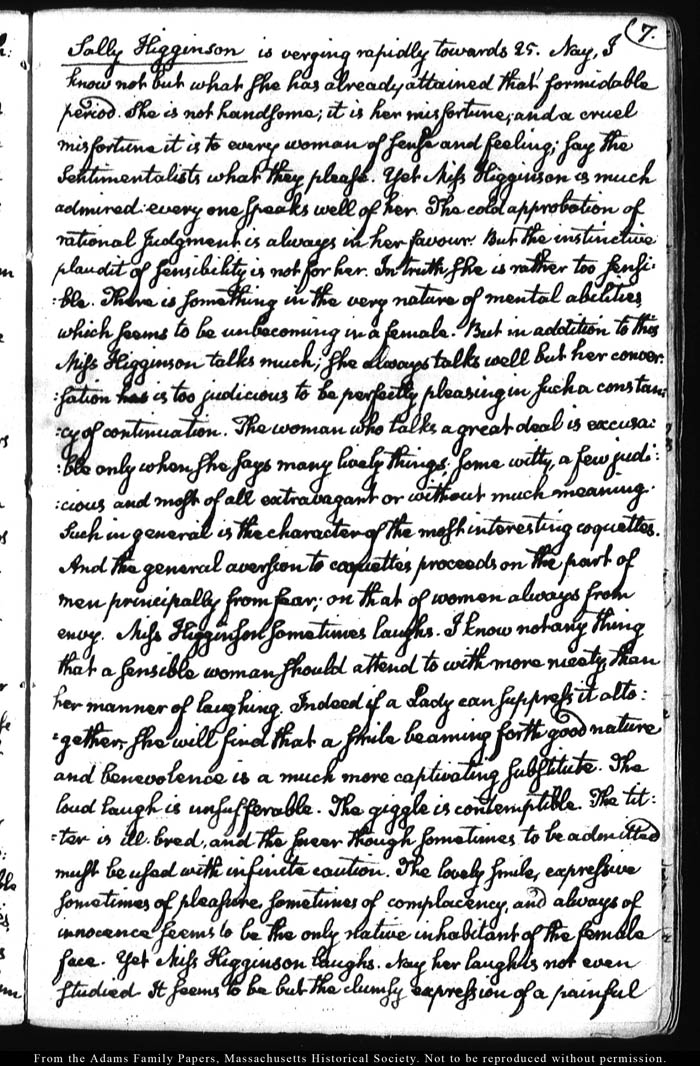 7.
Sally Higginson is verging rapidly towards 25. Nay, I
know not but what she has already attained that formidable
period. She is not handsome; it is her misfortune, and a cruel
misfortune it is to every woman of sense and feeling; say the
Sentimentalists what they please. Yet Miss Higginson is much
admired: every one speaks well of her. The cold approbation of
rational Judgment is always in her favour. But the instinctive
plaudit of sensibility is not for her. In truth she is rather too sensi:
:ble. There is something in the very nature of mental abilities
which seems to be unbecoming in a female. But in addition to this
Miss Higginson talks much; she always talks well but her conver:
:sation has is too judicious to be perfectly pleasing in such a constan:
:cy of continuation. The woman who talks a great deal is excusa:
:ble only when she says many lively things, some witty, a few judi:
:cious and most of all extravagant or without much meaning.
Such in general is the character of the most interesting coquettes.
And the general aversion to coquettes proceeds on the part of
men principally from fear; on that of women always from
envy. Miss Higginson sometimes laughs. I know not any thing
that a sensible woman should attend to with more nicety, than
her manner of laughing. Indeed if a Lady can suppress it alto:
:gether, she will find that a smile beaming forth good nature
and benevolence is a much more captivating substitute. The
loud laugh is unsufferable. The giggle is contemptible. The tit:
:ter is ill-bred, and the sneer though sometimes to be admitted
must be used with infinite caution. The lovely smile, expressive
sometimes of pleasure, sometimes of complacency, and always of
innocence seems to be the only native inhabitant of the female
face. Yet Miss Higginson laughs. Nay her laugh is not even
studied. It seems to be but the clumsy expression of a painful
From the Adams Family Papers, Massachusetts Historical Society. Not to be reproduced without permission.